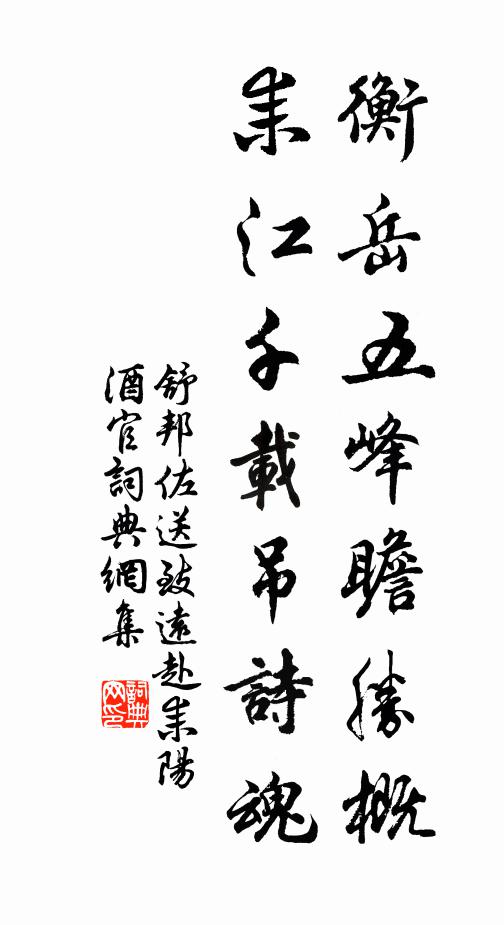 衡岳五峰瞻勝概
耒江千載吊詩魂
舒邦佐送致遠赴耒陽
酒官詞典網集
詞典网印